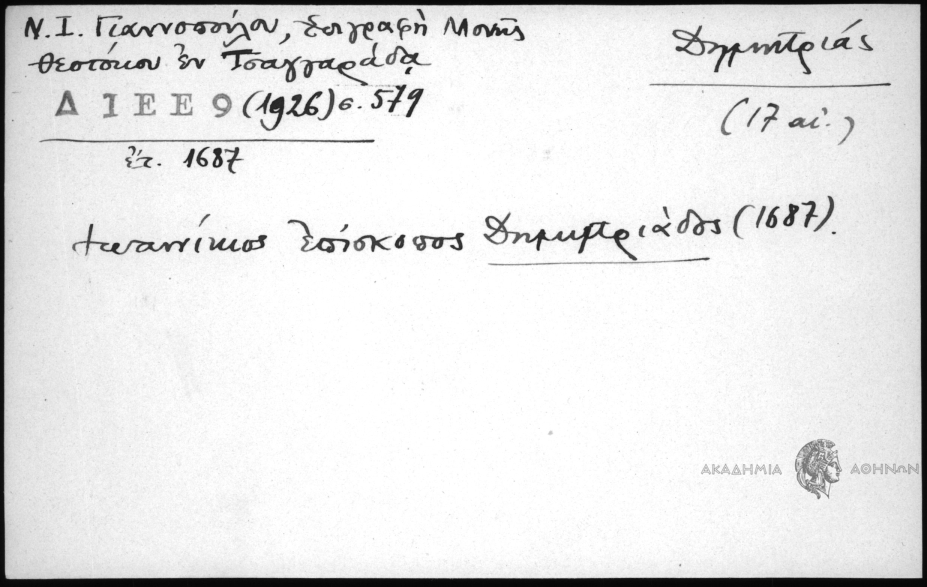 Ν. Ι. Γιαννοπούλου, Ἐπιγραφὴ Μονῆς
Θεοτόκου ἐν Τσαγγαράδᾳ
Δ Ι Ε Ε 9 (1926) σ. 579
ἔτ. 1687
Δημητριάς
(17 αἰ.)
Ἰωαννίκιος ἐπίσκοπος Δημητριάδος (1687).
ΑΚΑΔΗΜΙΑ ΑΘΗΝΩΝ